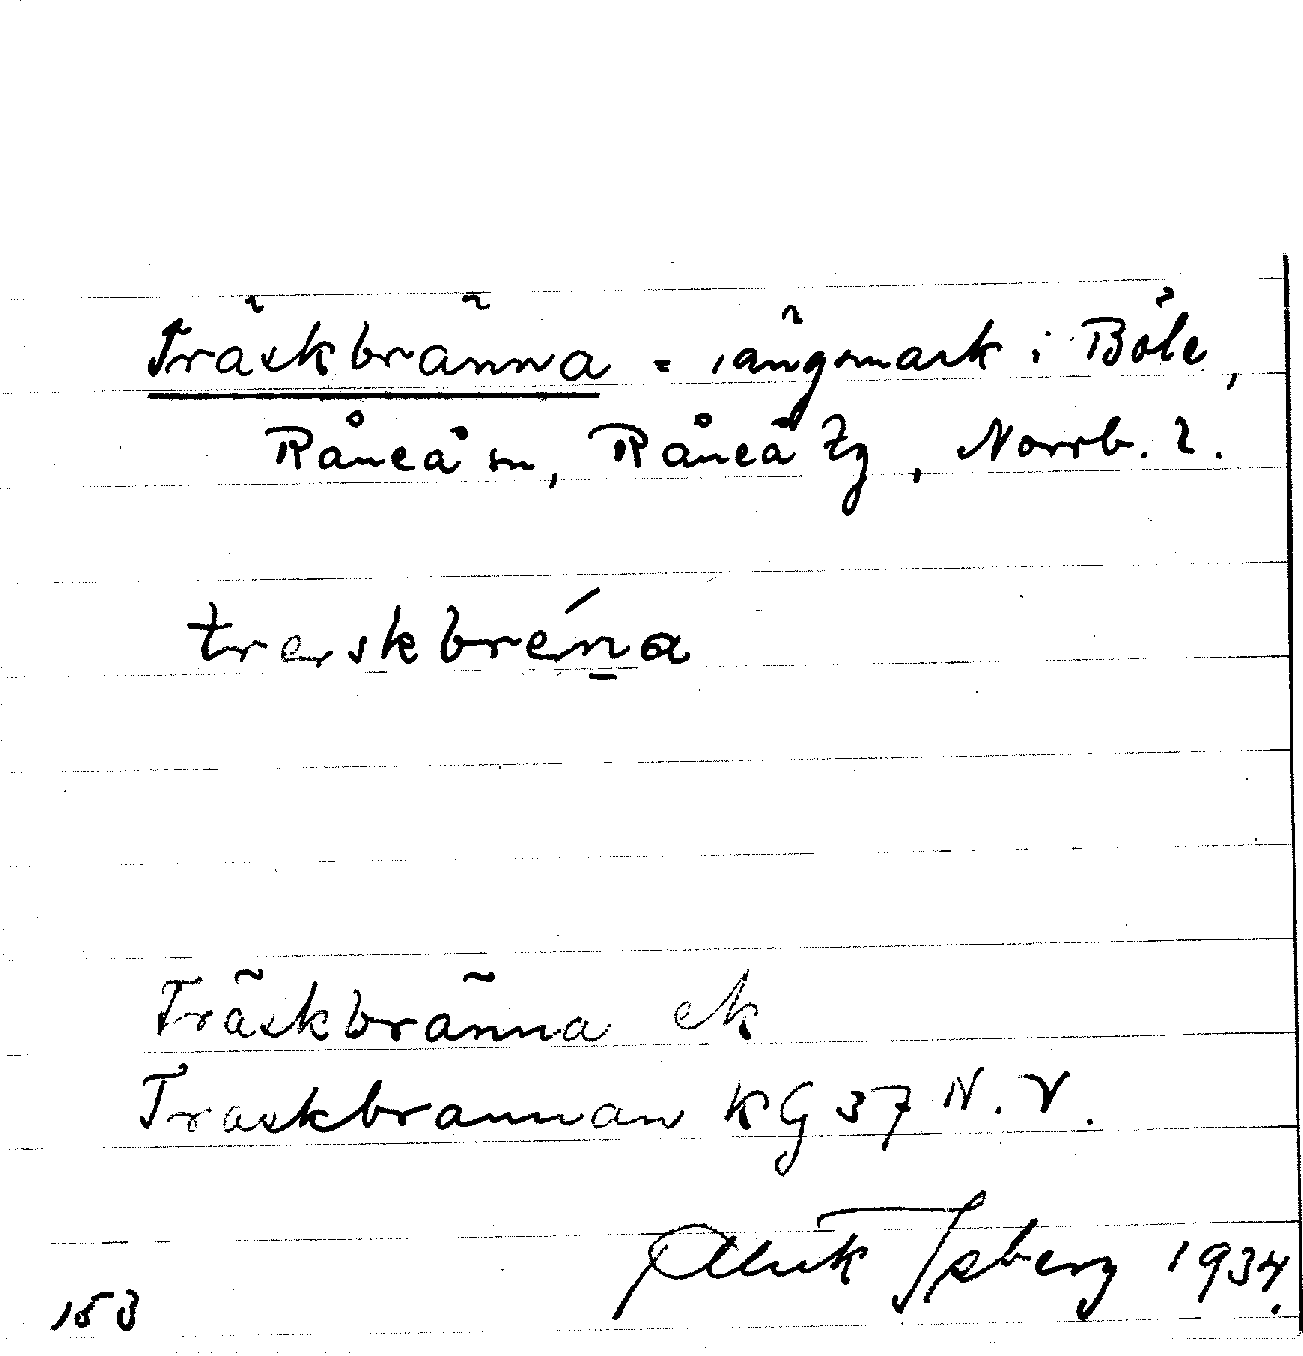 Träskbränna = ängsmark i Böle,
Råneå sn, Råneå tg, Norrb. l.
træskbréṉa
Träskbränna ek
Traskbrannan KG 37 N.V.
Isberg 1934.
153